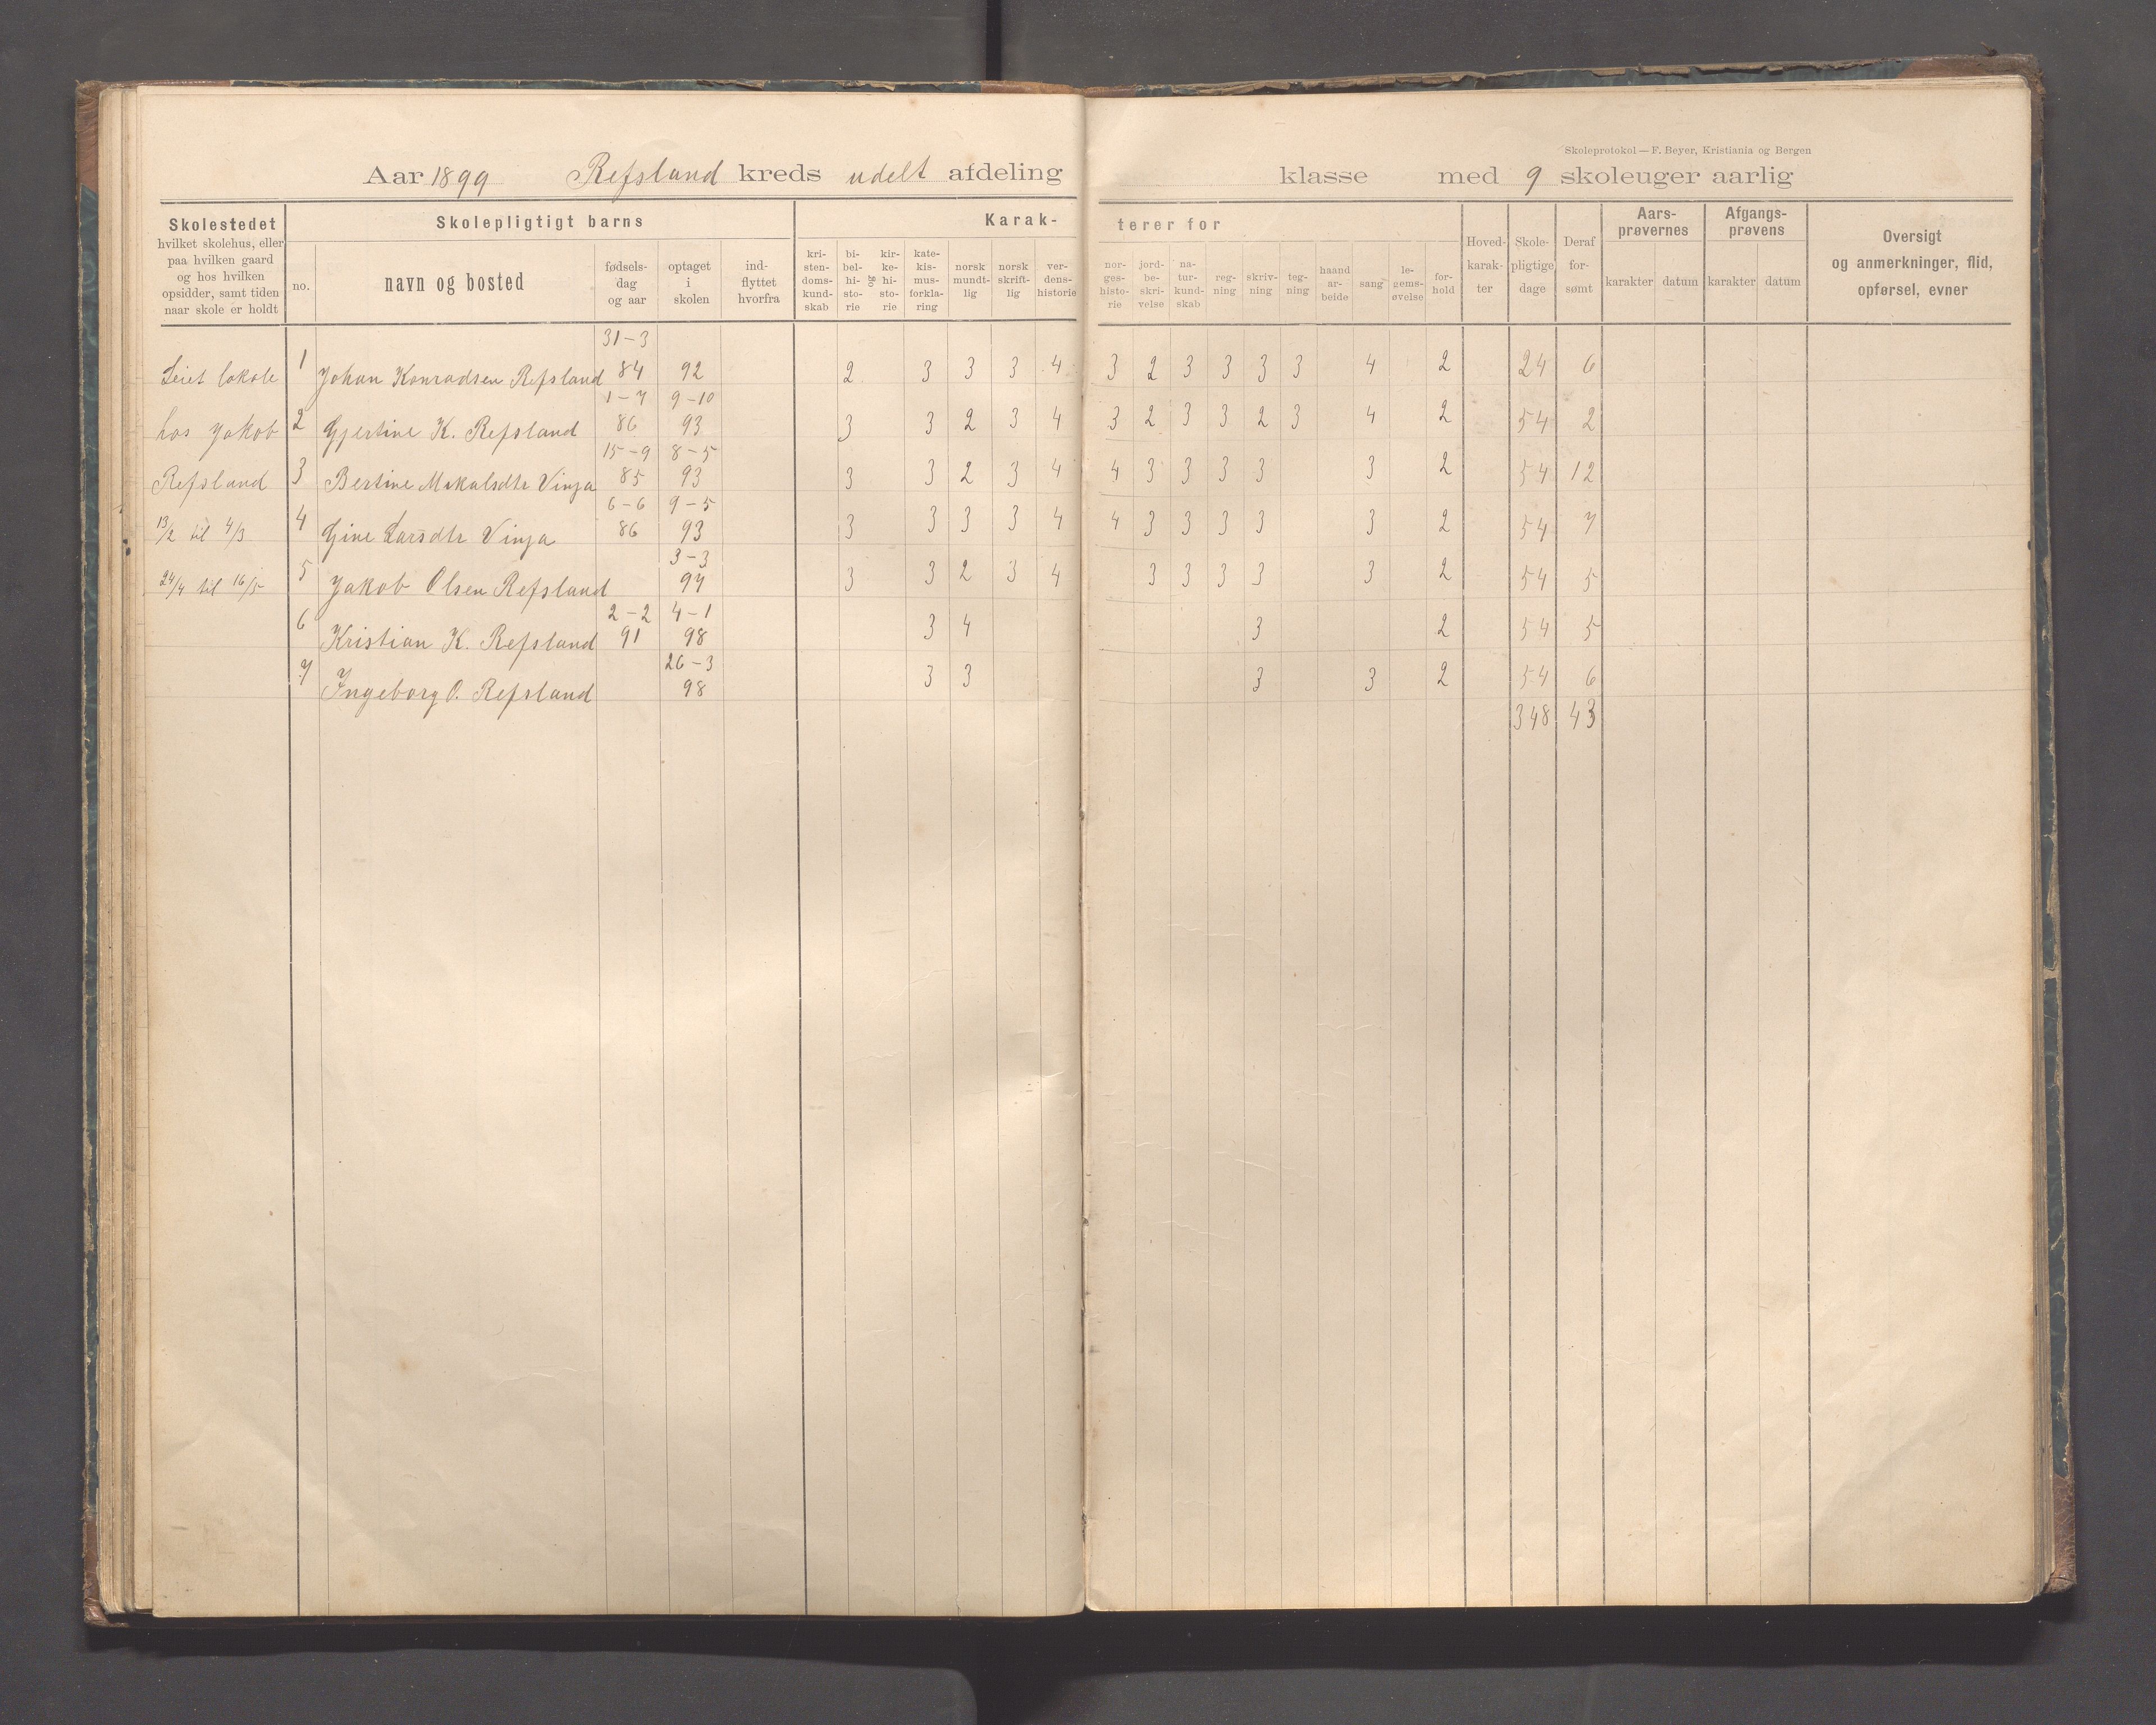 Skoleprotokol — F. Beyer, Kristiania og Bergen
Aar 1899 Refsland kreds udelt afdeling klasse med 9 skoleuger aarlig
Skolestedet
hvilket skolehus, eller
paa hvilken gaard
og hos hvilken
opsidder, samt tiden
naar skole er holdt
Skolepligtigt barns
no.
navn og bosted
fødsels-
dag
og aar
optaget
i
skolen
ind-
flyttet
hvorfra
Karak-
kri-
sten-
doms-
kund-
skab
bi-
bel-
hi-
sto-
rie
og
kir-
ke-
hi-
sto-
rie
kate-
kis-
mus-
forkla-
ring
norsk
mundt-
lig
norsk
skrift-
lig
ver-
dens-
historie
terer for
nor-
ges-
histo-
rie
jord-
be-
skri-
velse
na-
tur-
kund-
skab
reg-
ning
skriv-
ning
teg-
ning
haand
ar-
beide
sang
le-
gems-
øvelse
for-
hold
Hoved-
karak-
ter
Skole-
pligtige
dage
Deraf
for-
sømt
Aars-
prøvernes
karakter datum
Afgangs-
prøvens
karakter datum
Oversigt
og anmerkninger, flid,
opførsel, evner
31-3
Leiet lokale 1 Johan Konradsen Refsland 84 92 2 3 3 3 4 3 2 3 3 3 3 4 2 24 6
1-7 9-10
hos Jakob 2 Gjertine K. Refsland 86 93 3 3 2 3 4 3 2 3 3 2 3 4 2 54 2
15-9 8-5
Refsland 3 Bertine Mikalsdtr Vinja 85 93 3 3 2 3 4 4 3 3 3 3 3 2 54 12
6-6 9-5
13/2 til 4/3 4 Gine Larsdtr Vinja 86 93 3 3 3 3 4 4 3 3 3 3 3 2 54 7
3-3
24/4 til 16/5 5 Jakob Olsen Refsland 94 3 3 2 3 4 3 3 3 3 3 2 54 5
2-2 4-1
6 Kristian K. Refsland 91 98 3 4 3 2 54 5
26-3
7 Ingeborg O. Refsland 98 3 3 3 3 2 54 6
348 43